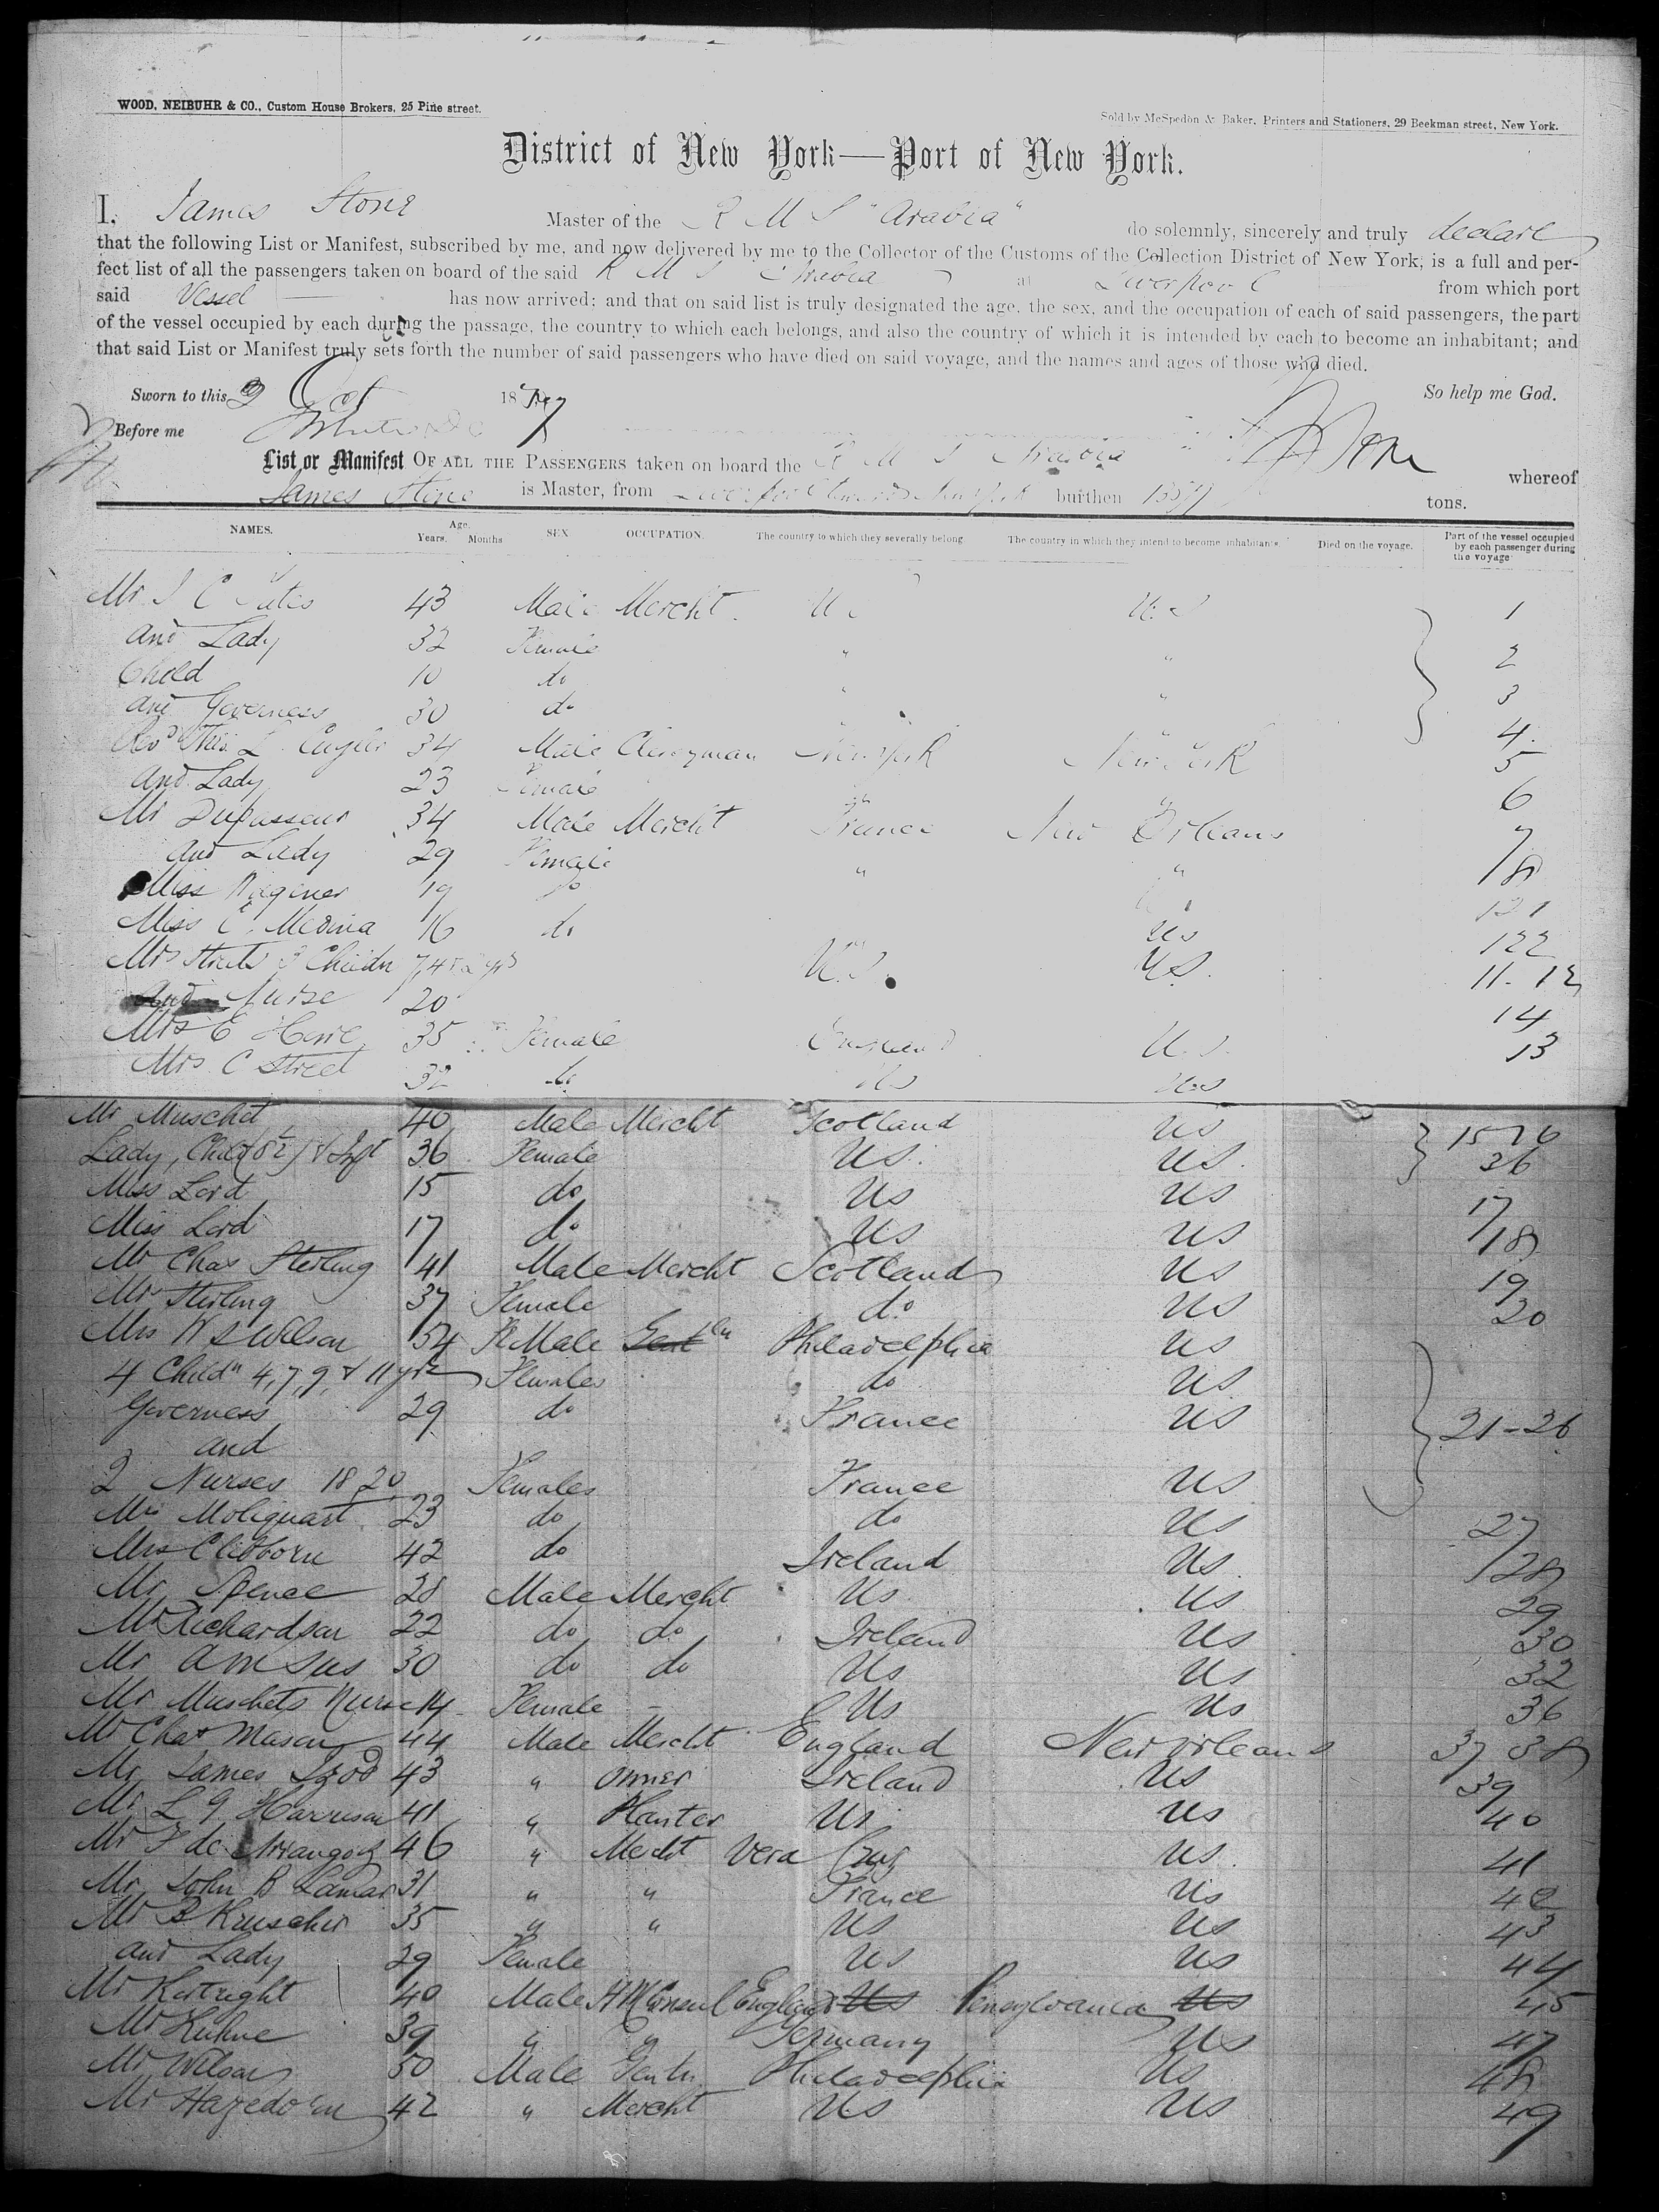 WOOD, NEIBUHR & CO., Custom House Brokers, 25 Pine street.
Sold by McSpedon & Baker, Printers and Stationers, 29 Beekman street, New York.
District of New York—Port of New York.
I, James Stone Master of the R M S "Arabia" do solemnly, sincerely and truly declare
that the following List or Manifest, subscribed by me, and now delivered by me to the Collector of the Customs of the Collection District of New York, is a full and per-
fect list of all the passengers taken on board of the said R M S Arabia at Liverpool from which port
said Vessel has now arrived; and that on said list is truly designated the age, the sex, and the occupation of each of said passengers, the part
of the vessel occupied by each during the passage, the country to which each belongs, and also the country of which it is intended by each to become an inhabitant; and
that said List or Manifest truly sets forth the number of said passengers who have died on said voyage, and the names and ages of those who died.
Sworn to this Oct 18 So help me God.
Before me
List or Manifest OF ALL THE PASSENGERS taken on board the R M S Arabia whereof
James Stone is Master, from Liverpool burthen tons.
NAMES. Age. Years. Months SEX OCCUPATION. The country to which they severally belong The country in which they intend to become inhabitants. Died on the voyage. Part of the vessel occupied by each passenger during the voyage
Mr J C 43 Male Mercht. U S 1
and Lady 32 Female " " 2
Child 10 do " " 3
and Governess 30 do 4
Revd Thos. L. 34 Male Clergyman New York New York 5
and Lady 23 Female " " 6
Mr 34 Male Mercht France New Orleans 7
and Lady 29 Female " " 8
Miss Wagener 19 do 121
Miss C. Medina 16 do US 122
Mrs 3 Childn 7, 4 & 2 yrs U.S. U.S. 11-12
and Nurse 20 14
Mrs E 35 Female England U.S. 13
Mrs C Street 32 do US US
Mr Muschet 40 Male Mercht Scotland US 15 16
Lady, Child & Inft 36 Female US. US. 36
Miss Lord 15 do US US 17
Miss Lord 17 do US US 18
Mr Chas Sterling 41 Male Mercht Scotland US 19
Mrs Sterling 37 Female do US 20
Mrs W S Wilson 34 Male Philadelphia US
4 Childn 4, 7, 9, & 11 yrs Females do US
Governess 29 do France US 21-26
and
2 Nurses 18 20 Females France US
Mrs Moliquart 23 do do US 27
Mrs Clibborn 42 do Ireland US 28
Mr Spence 28 Male Mercht US US 29
Mr Richardson 22 do do Ireland US 30
Mr 30 do do US US 32
Mr Muschets Nurse 14 Female US US 36
Mr Chas Mason 44 Male Mercht England New Orleans 37 38
Mr James 43 " Ireland US 39
Mr L G Harrison 41 " Planter US US 40
Mr F de Arrangoiz 46 " Mercht Vera Cruz US 41
Mr John B Lamar 31 " " France US 42
Mr B Kruscher 35 " " US US 43
and Lady 29 Female US US 44
Mr Kortright 40 Male HM Consul England US Pensylvania US 45
Mr Kuhne 39 " " Germany US 47
Mr Wilson 50 Male Gentn Philadelphia US 48
Mr Hagedorn 42 " Mercht US US 49